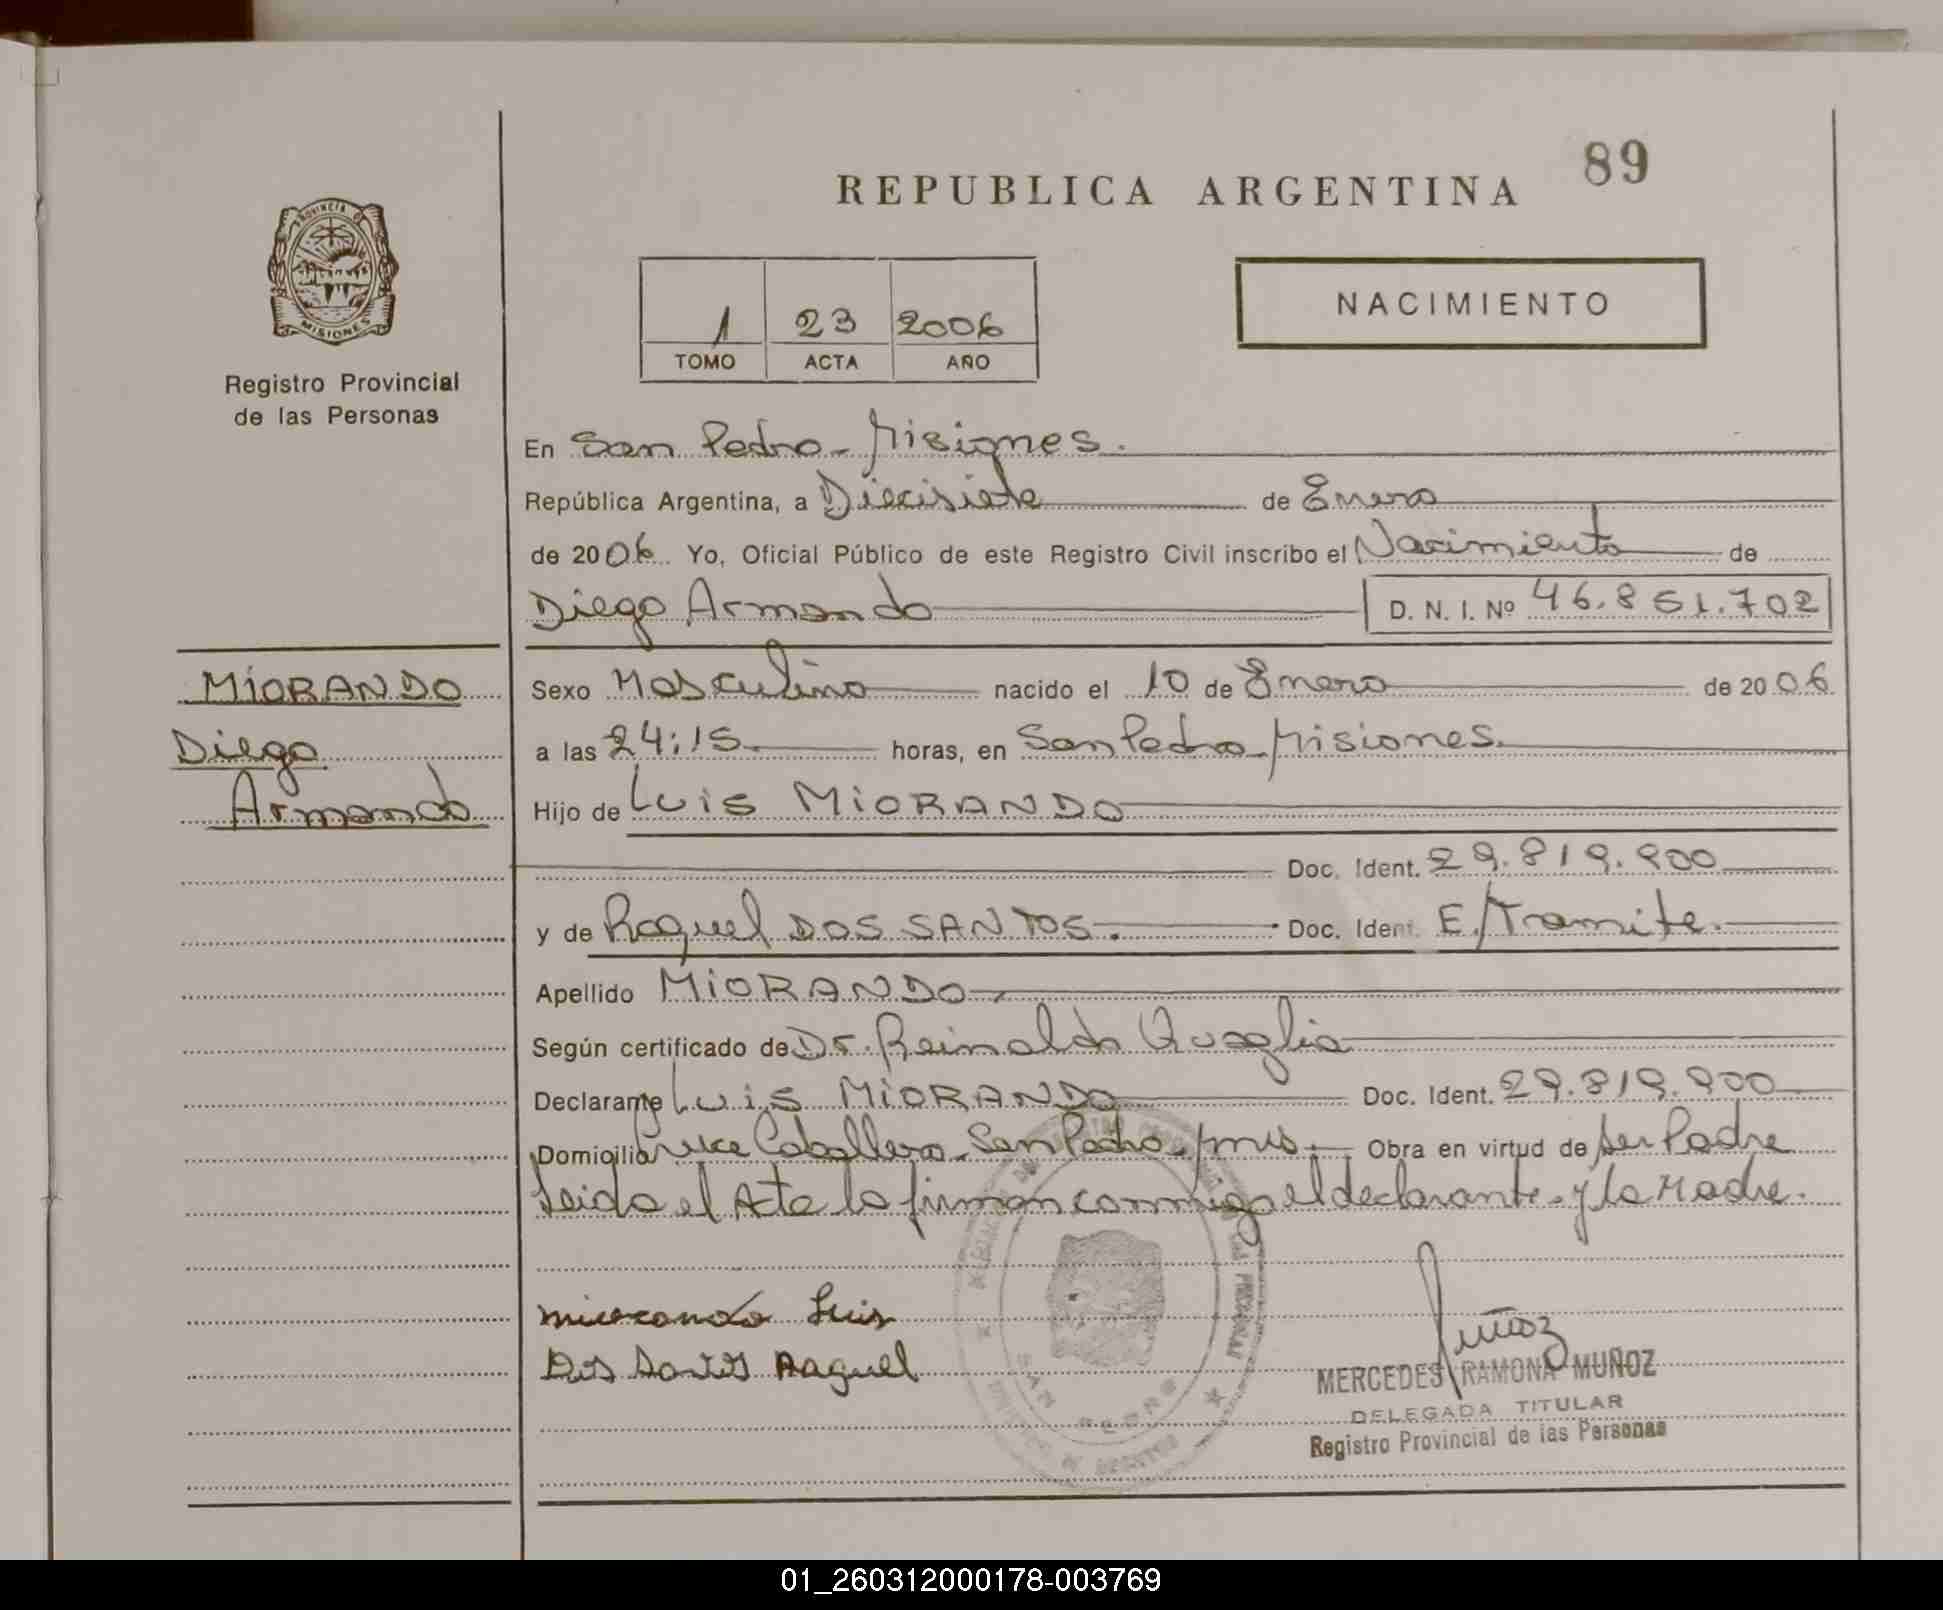 89
REPUBLICA ARGENTINA
PROVINCIA DE
MISIONES
Registro Provincial
de las Personas
1 23 2006
TOMO ACTA AÑO
NACIMIENTO
En San Pedro - Misiones.
República Argentina, a Diecisiete de Enero
de 2006 Yo, Oficial Público de este Registro Civil inscribo el Nacimiento de
Diego Armando D. N. I. Nº 46.851.702
MIORANDO
Diego
Armando
Sexo Masculino nacido el 10 de Enero de 2006
a las 24:15 horas, en San Pedro - Misiones.
Hijo de Luis MIORANDO
Doc. Ident. 29.819.900
y de Raquel DOS SANTOS. Doc. Ident. E/Tramite.
Apellido MIORANDO
Según certificado de Dr. Reinaldo Quaglia
Declarante Luis MIORANDO Doc. Ident. 29.819.900
Domicilio Cruce Caballero - San Pedro - Mnes. Obra en virtud de ser Padre
Leida el Acta la firman conmigo el declarante - y la Madre.
miorando Luis
Dos Santos Raquel
SAN PEDRO
Muñoz
MERCEDES RAMONA MUÑOZ
DELEGADA TITULAR
Registro Provincial de las Personas
01_260312000178-003769